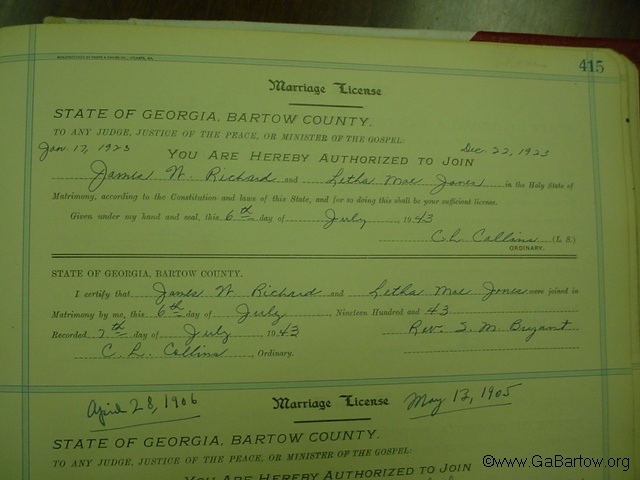 415
Marriage License
STATE OF GEORGIA, BARTOW COUNTY.
TO ANY JUDGE, JUSTICE OF THE PEACE, OR MINISTER OF THE GOSPEL:
Jan. 17, 1923 Dec. 22, 1923
YOU ARE HEREBY AUTHORIZED TO JOIN
James W. Richard and Letha Mae Jones in the Holy State of
Matrimony, according to the Constitution and laws of this State, and for so doing this shall be your sufficient license.
Given under my hand and seal, this 6th day of July, 1943
C. L. Collins (L. S.)
ORDINARY.
STATE OF GEORGIA, BARTOW COUNTY.
I certify that James W Richard and Letha Mae Jones were joined in
Matrimony by me, this 6th day of July, Nineteen Hundred and 43
Recorded 7th day of July, 1943 Rev. S. M. Bryant
C. L. Collins, Ordinary.
April 28, 1906 Marriage License May 13, 1905
STATE OF GEORGIA, BARTOW COUNTY.
TO ANY JUDGE, JUSTICE OF THE PEACE, OR MINISTER OF THE GOSPEL:
YOU ARE HEREBY AUTHORIZED TO JOIN
©www.GaBartow.org